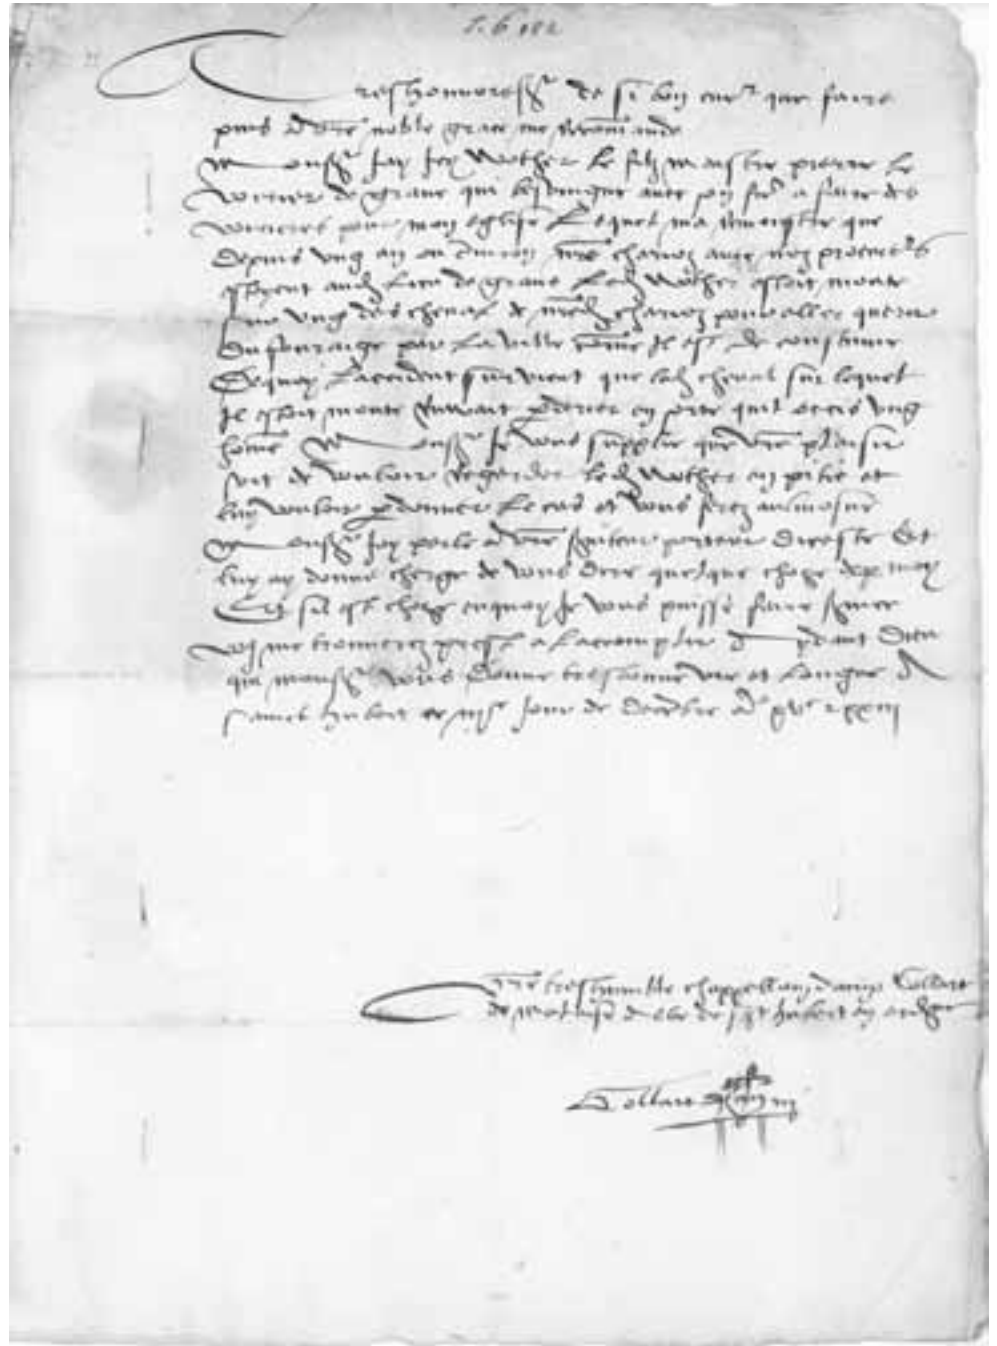 Treshonnore sr de si bon cuer que faire
puis a vre noble grace me recomande
Monsr Jay Icy Wother le filz maistre pierre le
voirier de grane qui besoingne avec son frere a faire des
voirieres pour mon eglise Lequel ma remonstre que
depuis ung an ou environ nre chariot avec noz
estoyent aud lieu de grane Led Wother estoit monte
sur ung des chevalx de nred chariot pour aller querir
du fouraige par la ville come Il est de coustume
Dequoy laccident survient que led cheval sur lequel
Il estoit monte ruwait pderier en sorte quil occis ung
home Monsr Je vous supplie que vre plaisir
soit de vouloir regarder led Wother en pitie et
luy vouloir pdonner le cas et vous ferez aulmosne
Monsr Jay parle a vre serviteur porteur dceste Et
luy ay donne cherge de vous dire quelque chose de p moy
Et sil est chose enquoy Je vous puisse faire service
me trouverez prest a laccomplir dieu
qui monsr vous donne tresbonne vie et longue A
sainct hubert ce iije Jour de decebre ao xvc xxiij
Vre treshumble chappellain damp Collart
de abbe de sainct hubert en ardene
Collart